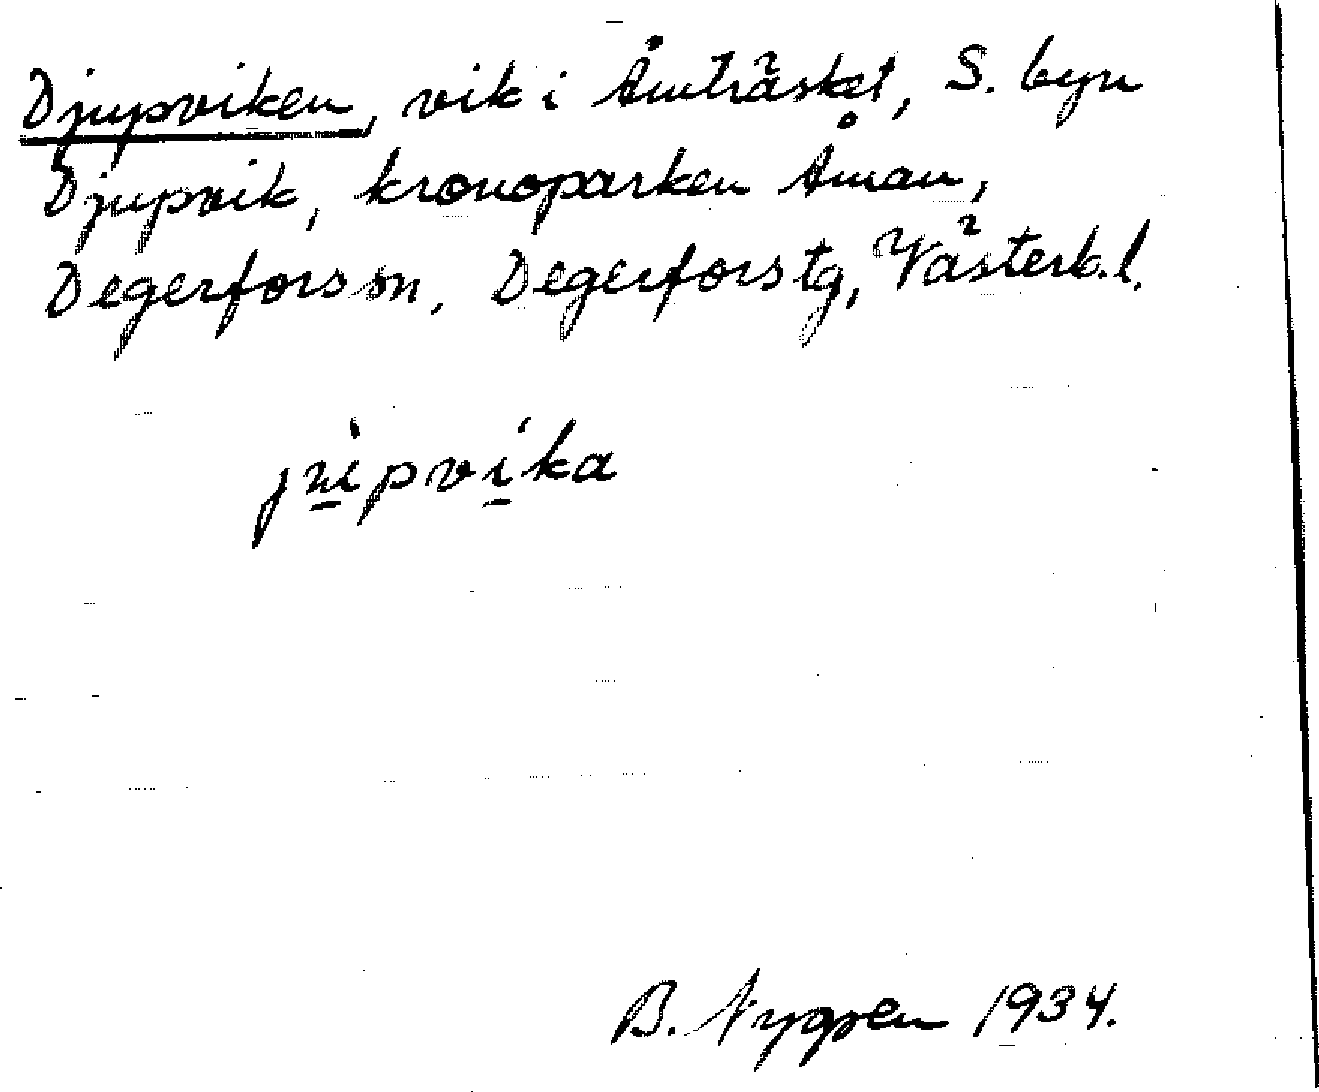 Djupviken, vik i Åmträsket, S. byn
Djupvik, kronoparken Åman,
Degerfors sn, Degerfors tg, Västerb.l.
B. Nygren 1934.